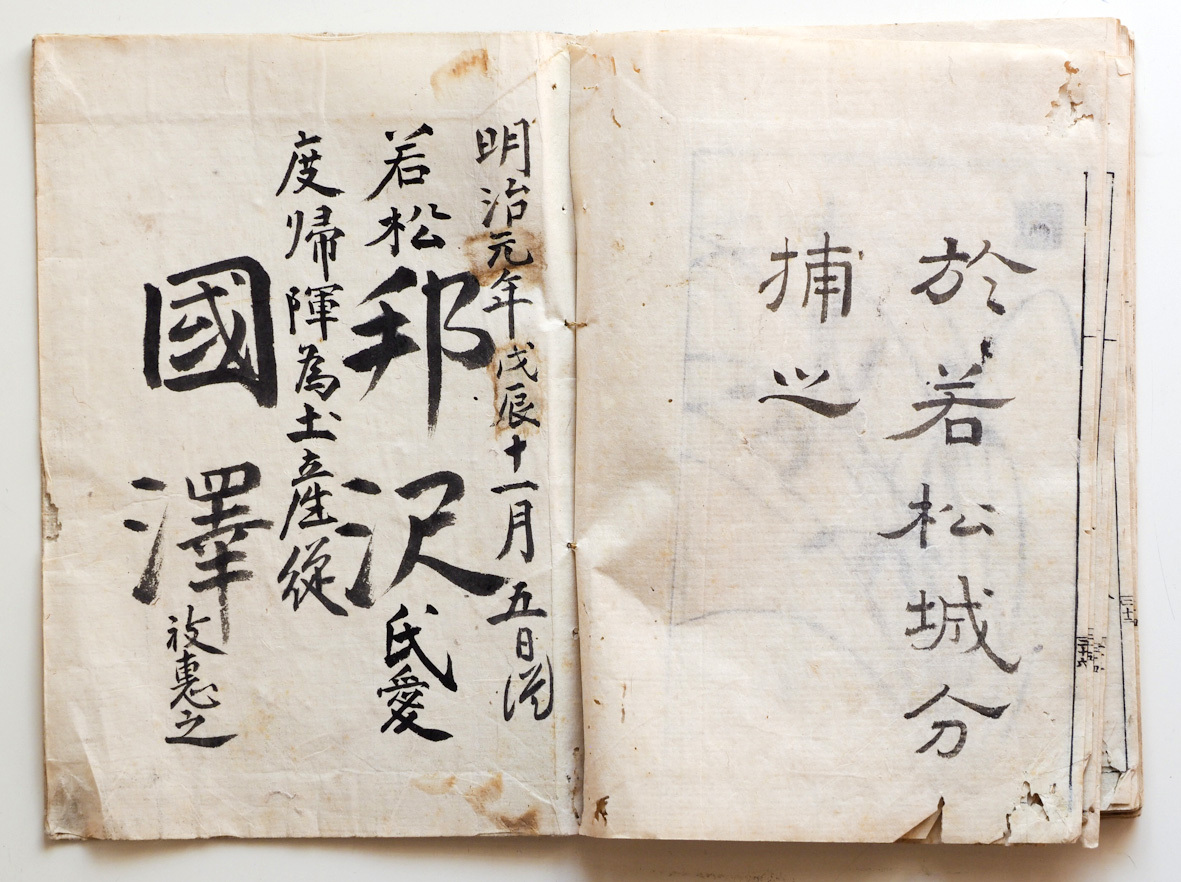 於若松城分
捕之
明治元年戊辰十一月五日
若松邦沢氏愛
度帰陣為土産従
國澤被惠之